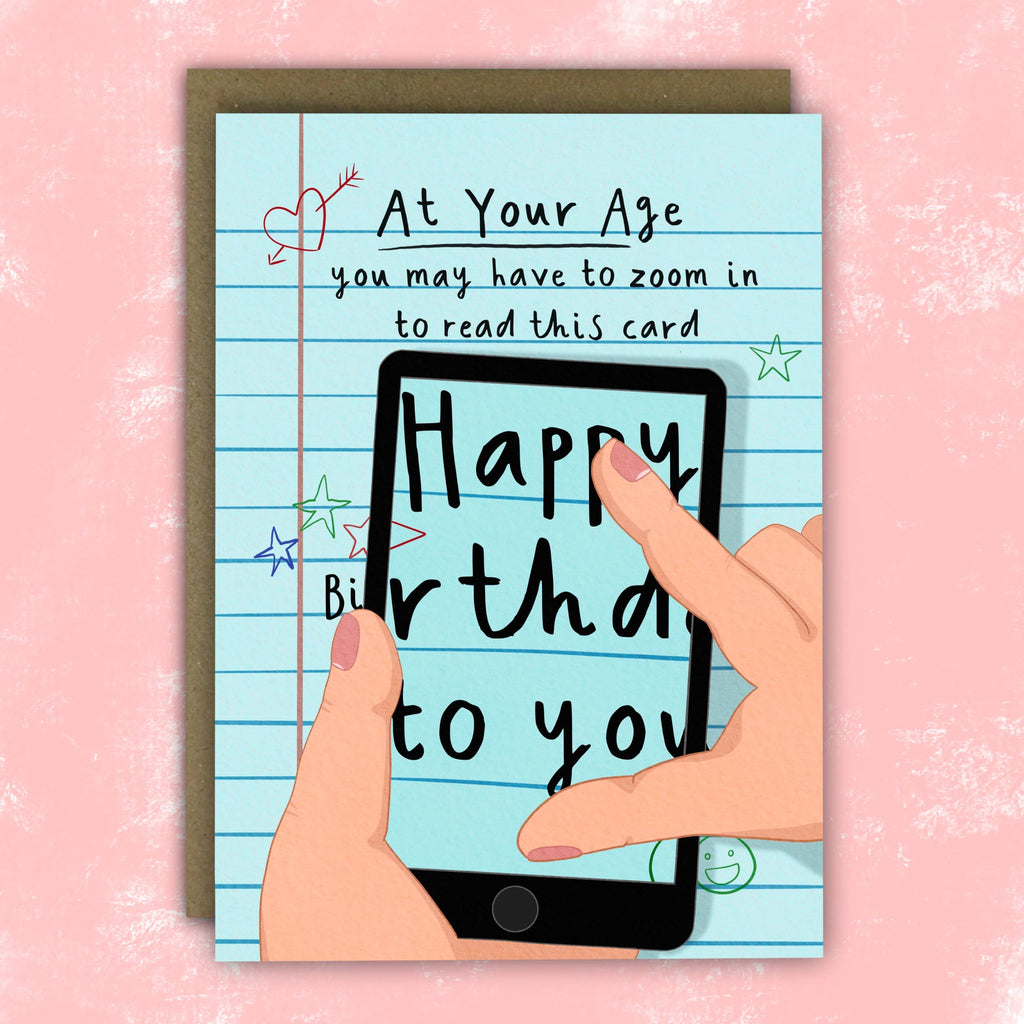 At Your Age
you may have to zoom in
to read this card
Happy
Birthd
to you